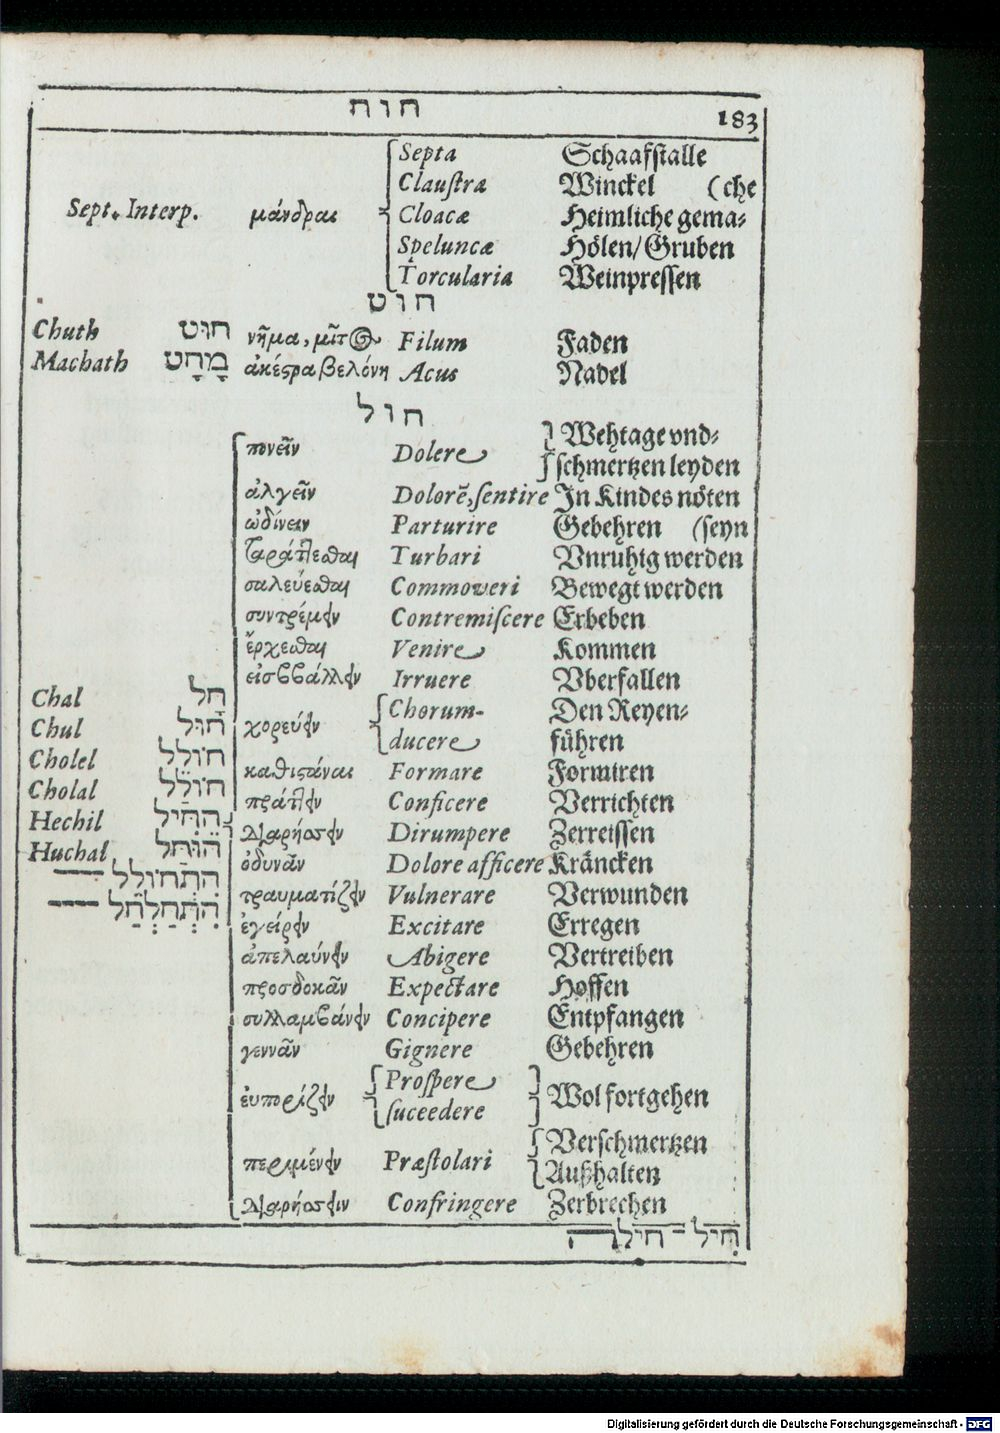 חוח 183
Septa Schaafstalle
Claustra Winckel (che
Sept. Interp. μάνδραι Cloacæ Heimliche gema-
Speluncæ Hölen/Gruben
Torcularia Weinpressen
חוט
Chuth חוּט νῆμα, μῖτος Filum Faden
Machath מָחָט ἀκέςρα βελόνη Acus Nadel
חול
πονεῖν Dolere Wehtage vnd-
schmertzen leyden
ἀλγεῖν Dolorē, sentire In Kindes nöten
ὠδίνειν Parturire Gebehren (seyn
ταράτλεσθαι Turbari Vnruhig werden
σαλεύεσθαι Commoveri Bewegt werden
συντρέμειν Contremiscere Erbeben
ἔρχεσθαι Venire Kommen
εἰσβάλλειν Irruere Vberfallen
Chal חָל
χορεύειν Chorum- Den Reyen-
Chul חוּל
ducere führen
Cholel חוֹלֵל
καθιςάναι Formare Formiren
Cholal חוֹלַל
πράτλειν Conficere Verrichten
Hechil הֵחִיל
Dirumpere Zerreissen
Huchal הוּחַל
ὀδυνᾶν Dolore afficere Kräncken
הִתְחוֹלֵל —
τραυματίζειν Vulnerare Verwunden
הִתְחַלְחַל ----
ἐγείρειν Excitare Erregen
ἀπελαύνειν Abigere Vertreiben
προσδοκᾶν Expectare Hoffen
συλλαμβάνειν Concipere Entpfangen
γεννᾶν Gignere Gebehren
ἐυπορίζειν Prospere Wol fortgehen
suceedere
περιμένειν Præstolari Verschmertzen
Außhalten
Confringere Zerbrechen
חִיל - חִילָה
Digitalisierung gefördert durch die Deutsche Forschungsgemeinschaft - DFG